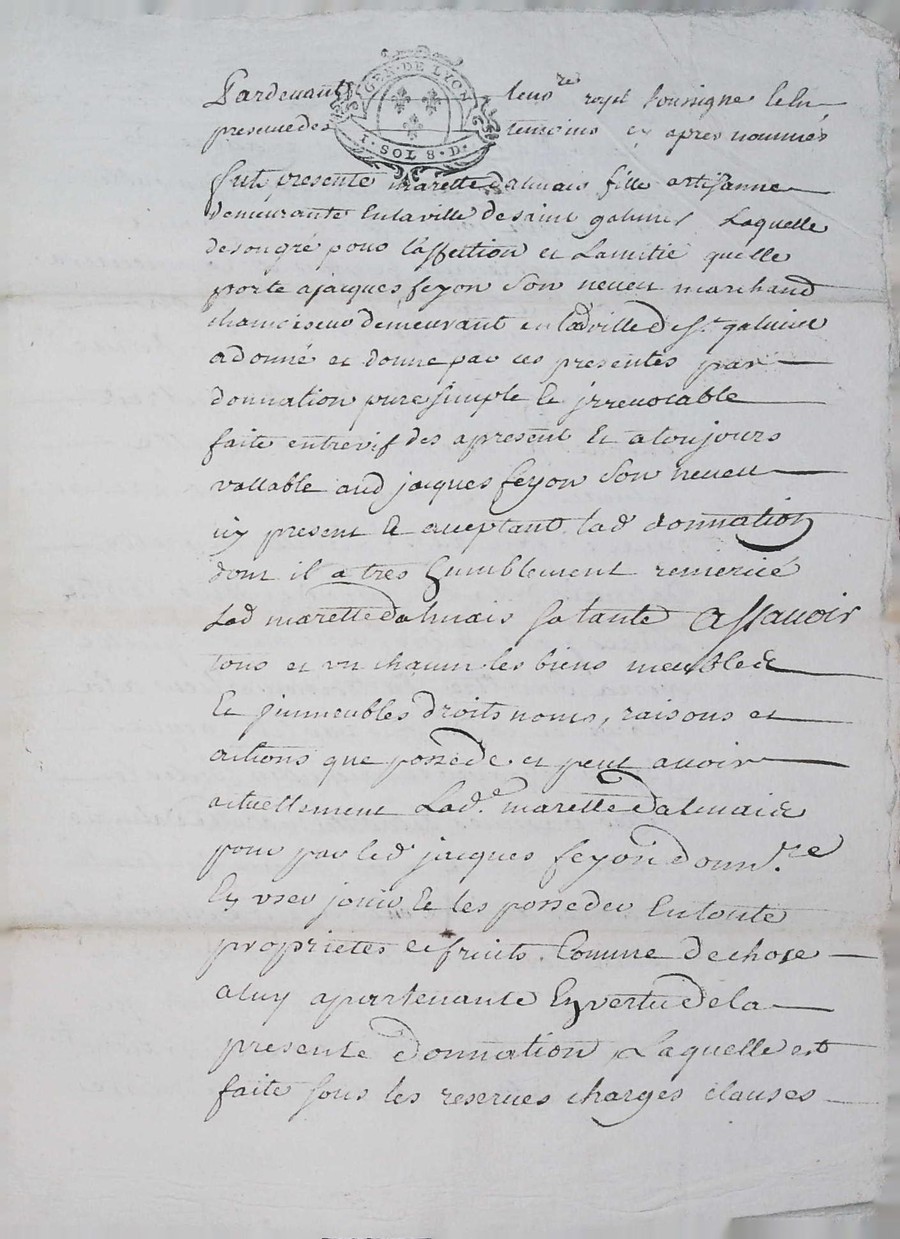 GEN. DE LYON
1. SOL 8. D.
Pardevant le no.re royal soussigne et en
presence des temoins cy apres nommés
fut presente marette dalmais fille artisanne
demeurante en la ville de saint galmier Laquelle
de son gré pour l'affection et L'amitié quelle
porte a jacques feyon son neveu marchand
chamoiseur demeurant en lad ville de st. galmier
a donné et donne par ces presentes par
donnation pure simple et jrrevocable
faite entrevif des apresent et a toujours
vallable aud jacques feyon son neveu
icy present et aceptant lad donnation
dont il a tres humblement remercié
Lad marette dalmais sa tante assavoir
tous et vn chacun les biens meubles
et jmmeubles droits noms, raisons et
actions que possede et peut avoir
actuellement Lad.e marette dalmais
pour par led jacques feyon donn.re
En vser jouir et les posseder En toute
proprietés et fruits. Comme de chose
a luy apartenante En vertu de la
presente donnation Laquelle est
faite sous les reserves charges clauses